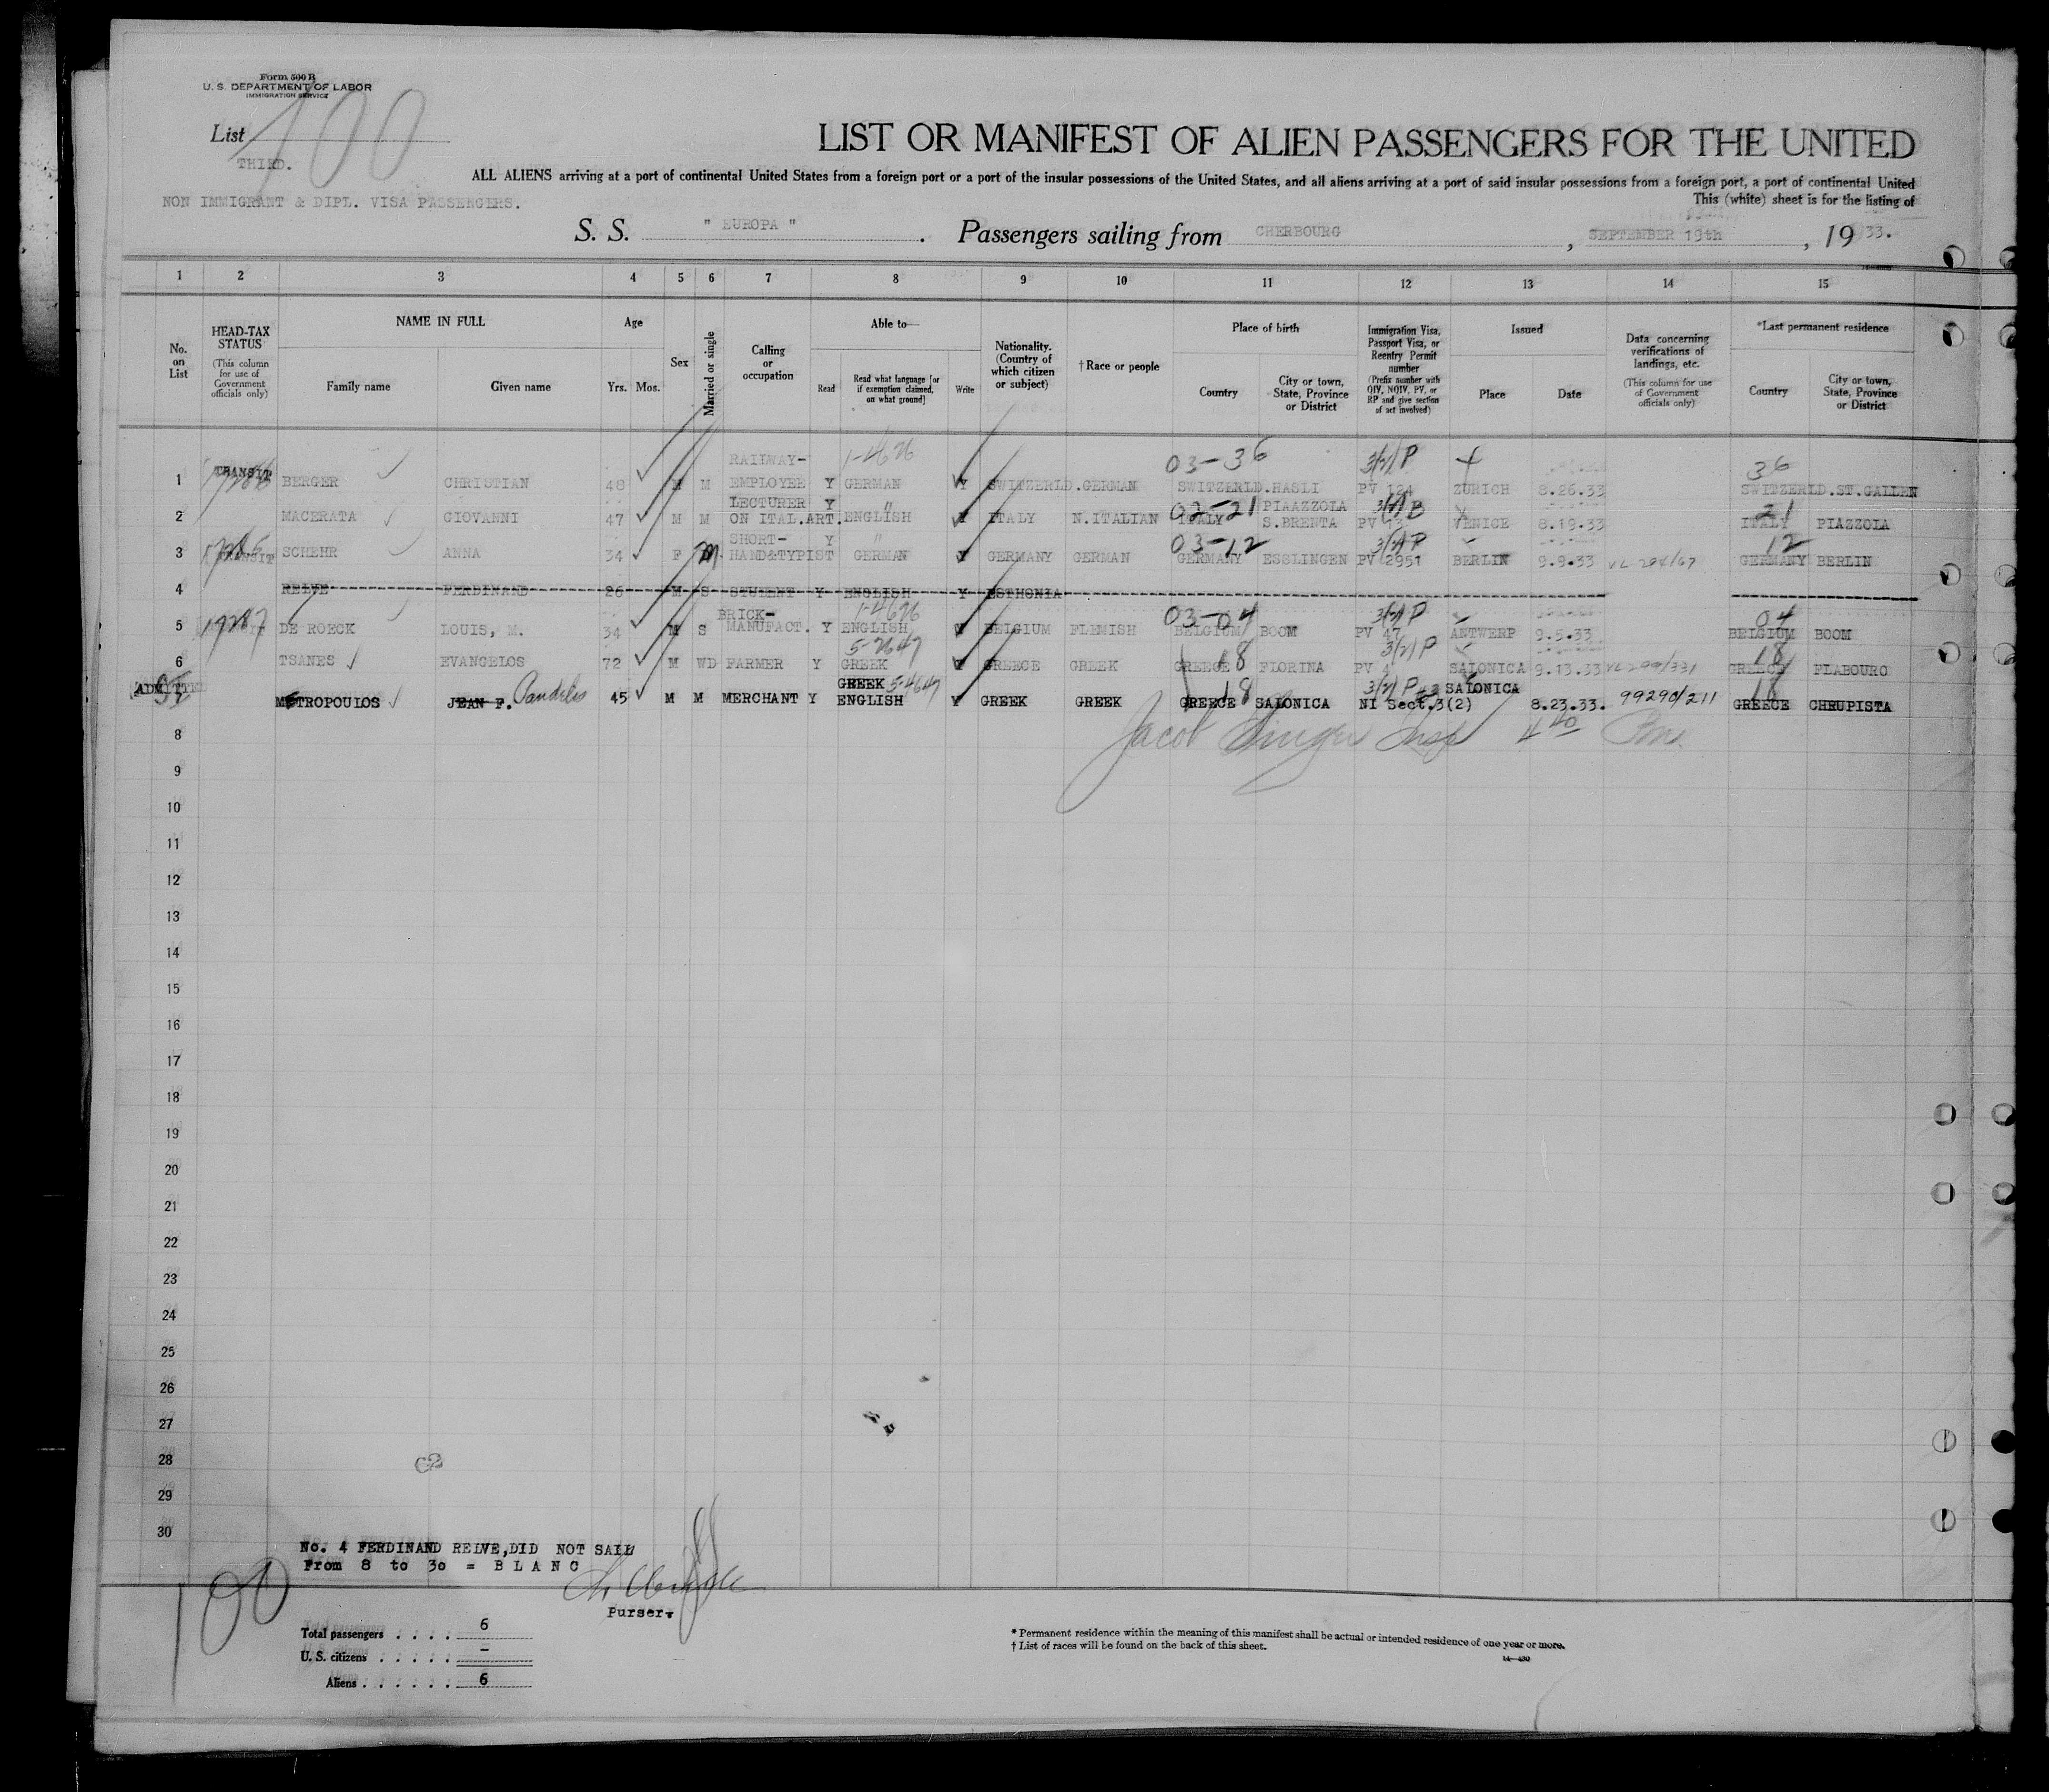 Form 500 B
U. S. DEPARTMENT OF LABOR
IMMIGRATION SERVICE
List 100
THIRD.
NON IMMIGRANT & DIPL. VISA PASSENGERS.
LIST OR MANIFEST OF ALIEN PASSENGERS FOR THE UNITED
ALL ALIENS arriving at a port of continental United States from a foreign port or a port of the insular possessions of the United States, and all aliens arriving at a port of said insular possessions from a foreign port, a port of continental United
This (white) sheet is for the listing of
S. S. " EUROPA " . Passengers sailing from CHERBOURG , SEPTEMBER 19th , 1933.
1 2 3 4 5 6 7 8 9 10 11 12 13 14 15
No. on List
HEAD-TAX STATUS (This column for use of Government officials only)
NAME IN FULL
Family name Given name
Age
Yrs. Mos.
Sex
Married or single
Calling or occupation
Able to—
Read Read what language [or if exemption claimed, on what ground] Write
Nationality. (Country of which citizen or subject)
† Race or people
Place of birth
Country City or town, State, Province or District
Immigration Visa, Passport Visa, or Reentry Permit number (Prefix number with QIV, NQIV, PV, or RP and give section of act involved)
Issued
Place Date
Data concerning verifications of landings, etc. (This column for use of Government officials only)
*Last permanent residence
Country City or town, State, Province or District
RAILWAY- 1-4626 03-36 3/2/P 36
1 TRANSIT BERGER CHRISTIAN 48 M M EMPLOYEE Y GERMAN Y SWITZERLD. GERMAN SWITZERLD. HASLI PV 124 ZURICH 8.26.33 SWITZERLD. ST.GALLEN
LECTURER Y " 02-21 PIAAZZOLA 3/2/B 21
2 MACERATA GIOVANNI 47 M M ON ITAL.ART. ENGLISH Y ITALY N.ITALIAN ITALY S.BRENTA VENICE 8.19.33 ITALY PIAZZOLA
SHORT- Y " 03-12 3/2/P 12
3 TRANSIT SCHEHR ANNA 34 F M HAND&TYPIST GERMAN Y GERMANY GERMAN GERMANY ESSLINGEN PV 2951 BERLIN 9.9.33 GERMANY BERLIN
4 RELVE FERDINAND 26 M S STUDENT Y ENGLISH Y ESTHONIA
BRICK- 1-4626 03-04 3/2/P 04
5 17287 DE ROECK LOUIS, M. 34 M S MANUFACT. Y ENGLISH Y BELGIUM FLEMISH BELGIUM BOOM PV 47 ANTWERP 9.5.33 BELGIUM BOOM
5-2647 18 3/2/P 18
6 TSANES EVANGELOS 72 M WD FARMER Y GREEK Y GREECE GREEK GREECE FLORINA PV 4 SALONICA 9.13.33 GREECE FLABOURO
ADMITTED GREEK 5-4647 18 3/2/P SALONICA 18
METROPOULOS JEAN F. Pandelis 45 M M MERCHANT Y ENGLISH Y GREEK GREEK GREECE SALONICA NI Sect.3(2) 8.23.33. 99290/211 GREECE CHRUPISTA
8 Jacob Singer Insp
9
10
11
12
13
14
15
16
17
18
19
20
21
22
23
24
25
26
27
28
29
30
No. 4 FERDINAND RELVE,DID NOT SAIL
From 8 to 30 = B L A N C
Purser.
100
Total passengers . . . . 6
U. S. citizens . . . . . -
Aliens . . . . . . 6
* Permanent residence within the meaning of this manifest shall be actual or intended residence of one year or more.
† List of races will be found on the back of this sheet.
14—430